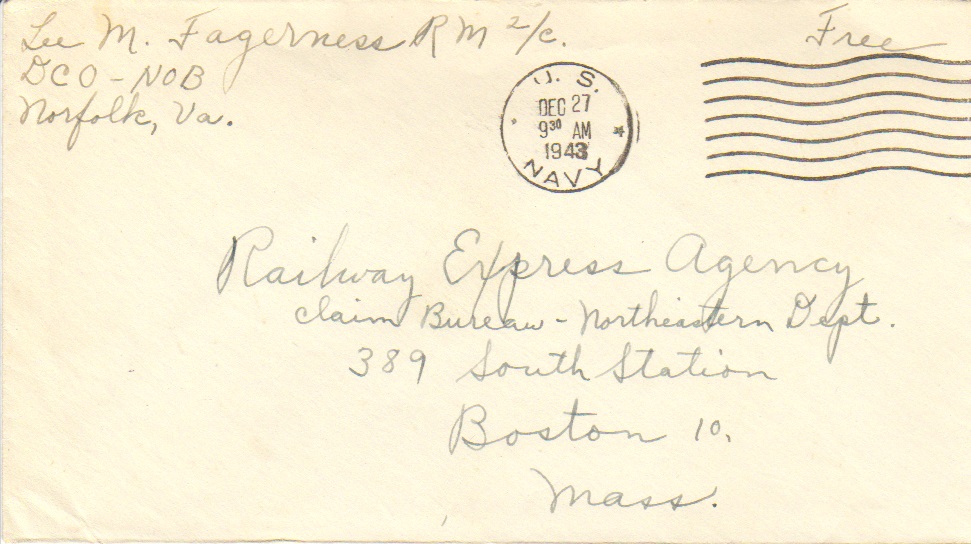 Lee M. Fagerness RM 2/c.
DCO - NOB
Norfolk, Va.
Free
U. S.
DEC 27
9³⁰ AM
1943
NAVY
Railway Express Agency
Claim Bureau - Northeastern Dept.
389 South Station
Boston 10,
Mass.